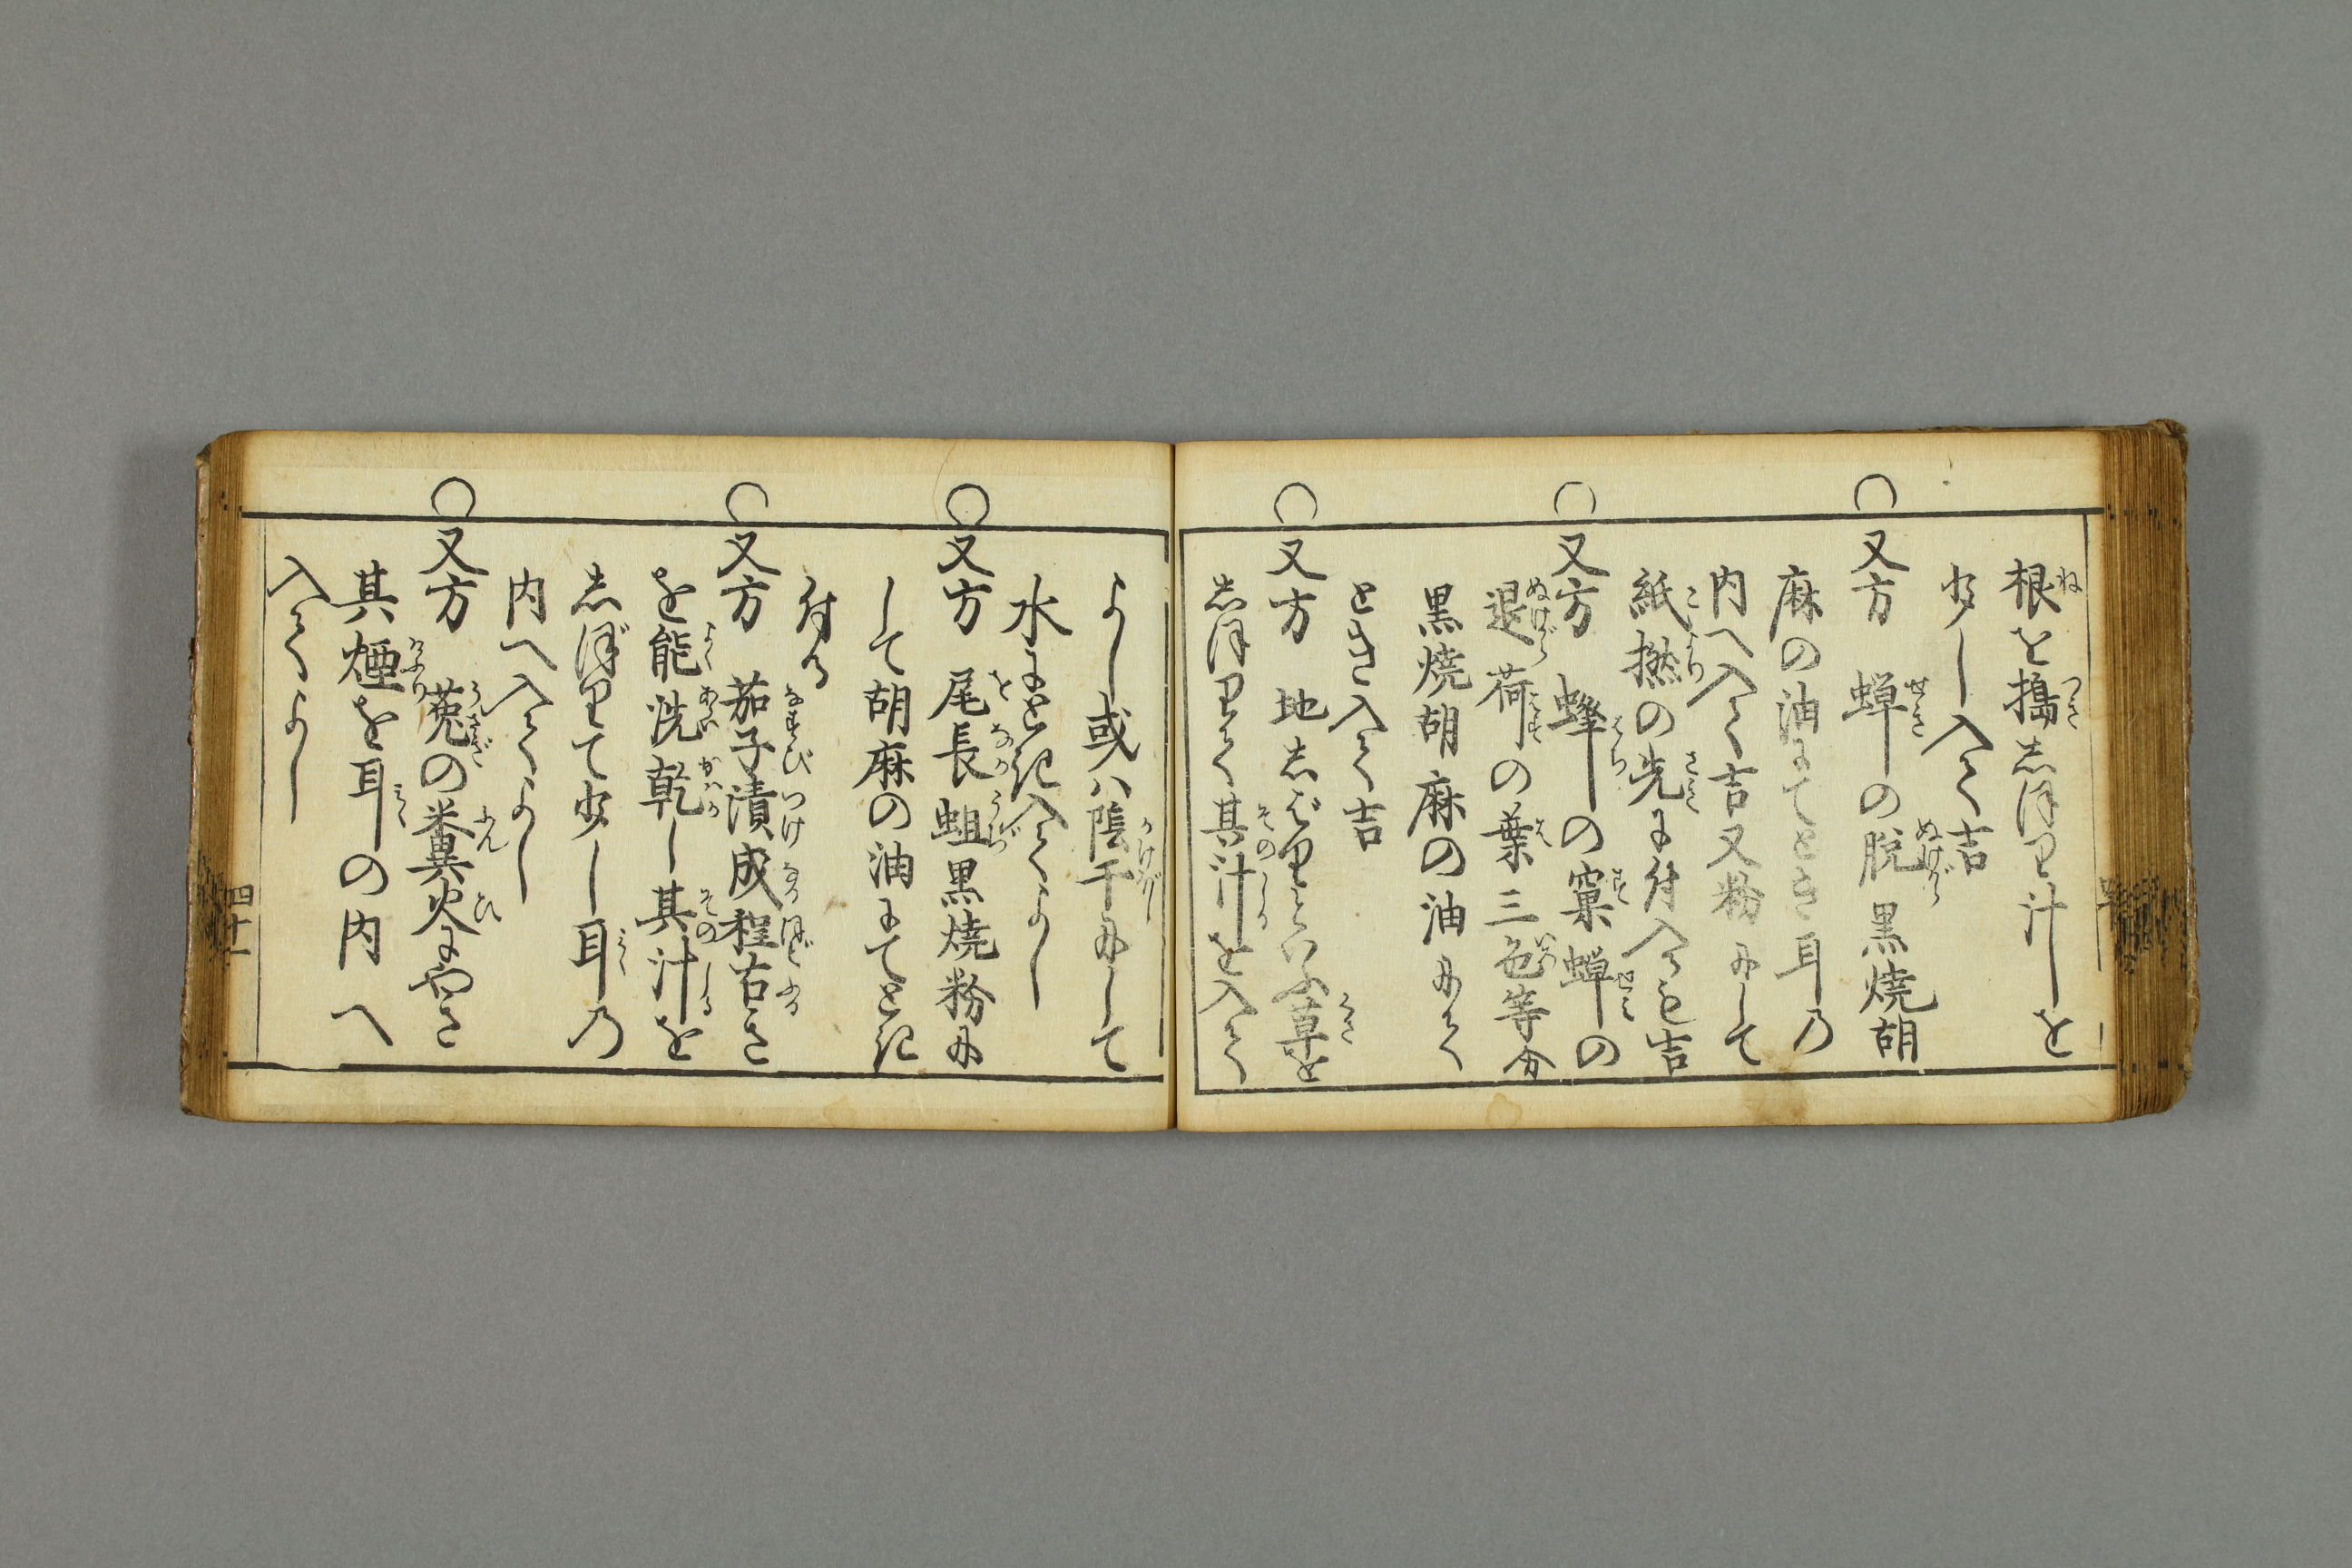 根を搗しほり汁を
少し入て吉
○又方　蝉の脱黒焼胡
麻の油にてとき耳の
内へ入て吉又粉にして
紙撚の先に付入るも吉
○又方　蜂の窠蝉の
退荷の葉三色等分
黒焼胡麻の油にて
とき入て吉
○又方　地しばりといふ草を
しほりて其汁を入て
よし或ハ陰干にして
水にとき入てよし
○又方　尾長蛆黒焼粉に
して胡麻の油にてとき
付る
○又方　茄子漬成程古き
を能洗乾し其汁を
しぼりて少し耳の
内へ入てよし
○又方　菟の糞火にやき
其煙を耳の内へ
入てよし
四十一